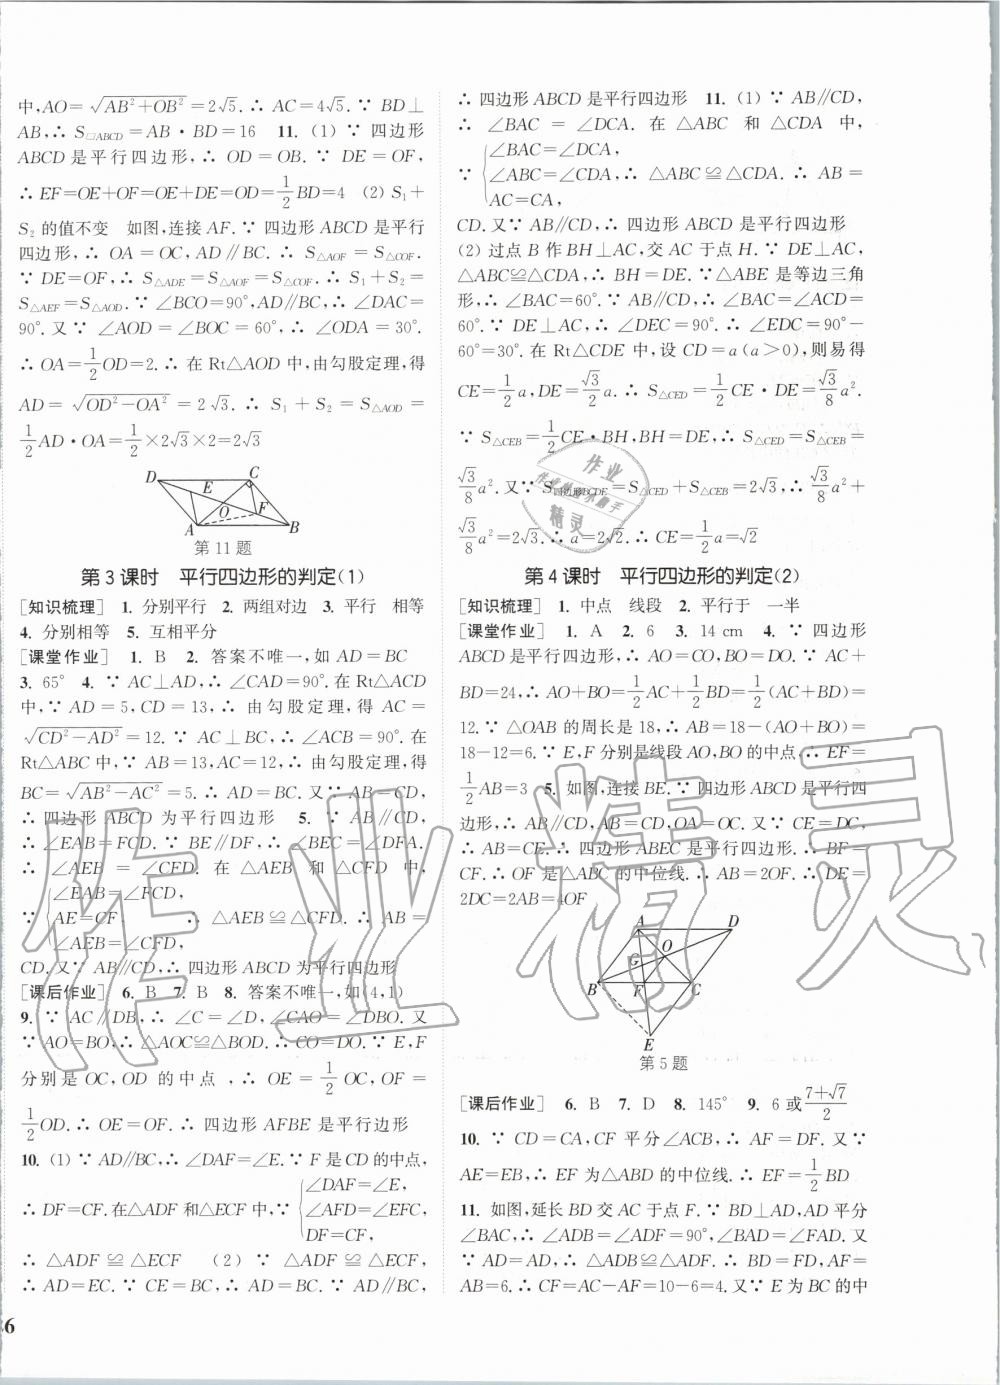 中,AO=√(AB²+OB²)=2√5.∴ AC=4√5.∵ BD⊥
AB,∴ S□ABCD=AB·BD=16 11. (1) ∵ 四边形
ABCD 是平行四边形,∴ OD=OB.∵ DE=OF,
∴ EF=OE+OF=OE+DE=OD=1/2BD=4 (2) S₁+
S₂ 的值不变 如图,连接 AF.∵ 四边形 ABCD 是平行
四边形,∴ OA=OC,AD∥BC.∴ S△AOF=S△COF.
∵ DE=OF,∴ S△ADE=S△AOF=S△COF.∴ S₁+S₂=
S△AEF=S△AOD.∵ ∠BCO=90°,AD∥BC,∴ ∠DAC=
90°.又∵ ∠AOD=∠BOC=60°,∴ ∠ODA=30°.
∴ OA=1/2OD=2.∴ 在 Rt△AOD 中,由勾股定理,得
AD=√(OD²-OA²)=2√3.∴ S₁+S₂=S△AOD=
1/2AD·OA=1/2×2√3×2=2√3
D C E O F A B
第11题
第3课时 平行四边形的判定(1)
[知识梳理] 1. 分别平行 2. 两组对边 3. 平行 相等
4. 分别相等 5. 互相平分
[课堂作业] 1. B 2. 答案不唯一,如 AD=BC
3. 65° 4. ∵ AC⊥AD,∴ ∠CAD=90°.在 Rt△ACD
中,∵ AD=5,CD=13,∴ 由勾股定理,得 AC=
√(CD²-AD²)=12.∵ AC⊥BC,∴ ∠ACB=90°.在
Rt△ABC 中,∵ AB=13,AC=12,∴ 由勾股定理,得
BC=√(AB²-AC²)=5.∴ AD=BC.又∵ AB=CD,
∴ 四边形 ABCD 为平行四边形 5. ∵ AB∥CD,
∴ ∠EAB=∠FCD.∵ BE∥DF,∴ ∠BEC=∠DFA.
∴ ∠AEB=∠CFD.在△AEB 和△CFD 中,
∠EAB=∠FCD,
∵ AE=CF ∴ △AEB≌△CFD.∴ AB=
∠AEB=∠CFD,
CD.又∵ AB∥CD,∴ 四边形 ABCD 为平行四边形
[课后作业] 6. B 7. B 8. 答案不唯一,如(4,1)
9. ∵ AC∥DB,∴ ∠C=∠D,∠CAO=∠DBO.又
∵ AO=BO,∴ △AOC≌△BOD.∴ CO=DO.∵ E,F
分别是 OC,OD 的中点,∴ OE=1/2OC,OF=
1/2OD.∴ OE=OF.∴ 四边形 AFBE 是平行四边形
10. (1) ∵ AD∥BC,∴ ∠DAF=∠E.∵ F 是 CD 的中点,
∠DAF=∠E,
∴ DF=CF.在△ADF 和△ECF 中,∵ ∠AFD=∠EFC,
DF=CF,
∴ △ADF≌△ECF (2) ∵ △ADF≌△ECF,
∴ AD=EC.∵ CE=BC,∴ AD=BC.又∵ AD∥BC,
∴ 四边形 ABCD 是平行四边形 11. (1) ∵ AB∥CD,
∴ ∠BAC=∠DCA.在△ABC 和△CDA 中,
∠BAC=∠DCA,
∵ ∠ABC=∠CDA,∴ △ABC≌△CDA.∴ AB=
AC=CA,
CD.又∵ AB∥CD,∴ 四边形 ABCD 是平行四边形
(2) 过点 B 作 BH⊥AC,交 AC 于点 H.∵ DE⊥AC,
△ABC≌△CDA,∴ BH=DE.∵ △ABE 是等边三角
形,∴ ∠BAC=60°.∵ AB∥CD,∴ ∠BAC=∠ACD=
60°.∵ DE⊥AC,∴ ∠DEC=90°.∴ ∠EDC=90°-
60°=30°.在 Rt△CDE 中,设 CD=a(a>0),则易得
CE=1/2a,DE=√3/2a.∴ S△CED=1/2CE·DE=√3/8a².
∵ S△CEB=1/2CE·BH,BH=DE,∴ S△CED=S△CEB=
√3/8a².又∵ S四边形BCDE=S△CED+S△CEB=2√3,∴ √3/8a²+
√3/8a²=2√3.∴ a=2√2.∴ CD=2√2
第4课时 平行四边形的判定(2)
[知识梳理] 1. 中点 线段 2. 平行于 一半
[课堂作业] 1. A 2. 6 3. 14 cm 4. ∵ 四边形
ABCD 是平行四边形,∴ AO=CO,BO=DO.∵ AC+
BD=24,∴ AO+BO=1/2AC+1/2BD=1/2(AC+BD)=
12.∵ △OAB 的周长是 18,∴ AB=18-(AO+BO)=
18-12=6.∵ E,F 分别是线段 AO,BO 的中点,∴ EF=
1/2AB=3 5. 如图,连接 BE.∵ 四边形 ABCD 是平行四
边形,∴ AB∥CD,AB=CD,OA=OC.又∵ CE=DC,
∴ AB=CE.∴ 四边形 ABEC 是平行四边形.∴ BF=
CF.∴ OF 是△ABC 的中位线.∴ AB=2OF.∴ DE=
2DC=2AB=4OF
A D O G B F C E
第5题
[课后作业] 6. B 7. D 8. 145° 9. 6 或 (7+√7)/2
10. ∵ CD=CA,CF 平分∠ACB,∴ AF=DF.又∵
AE=EB,∴ EF 为△ABD 的中位线.∴ EF=1/2BD
11. 如图,延长 BD 交 AC 于点 F.∵ BD⊥AD,AD 平分
∠BAC,∴ ∠ADB=∠ADF=90°,∠BAD=∠FAD.又
∵ AD=AD,∴ △ADB≌△ADF.∴ BD=FD,AF=
AB=6.∴ CF=AC-AF=10-6=4.又∵ E 为 BC 的中
6
作业精灵